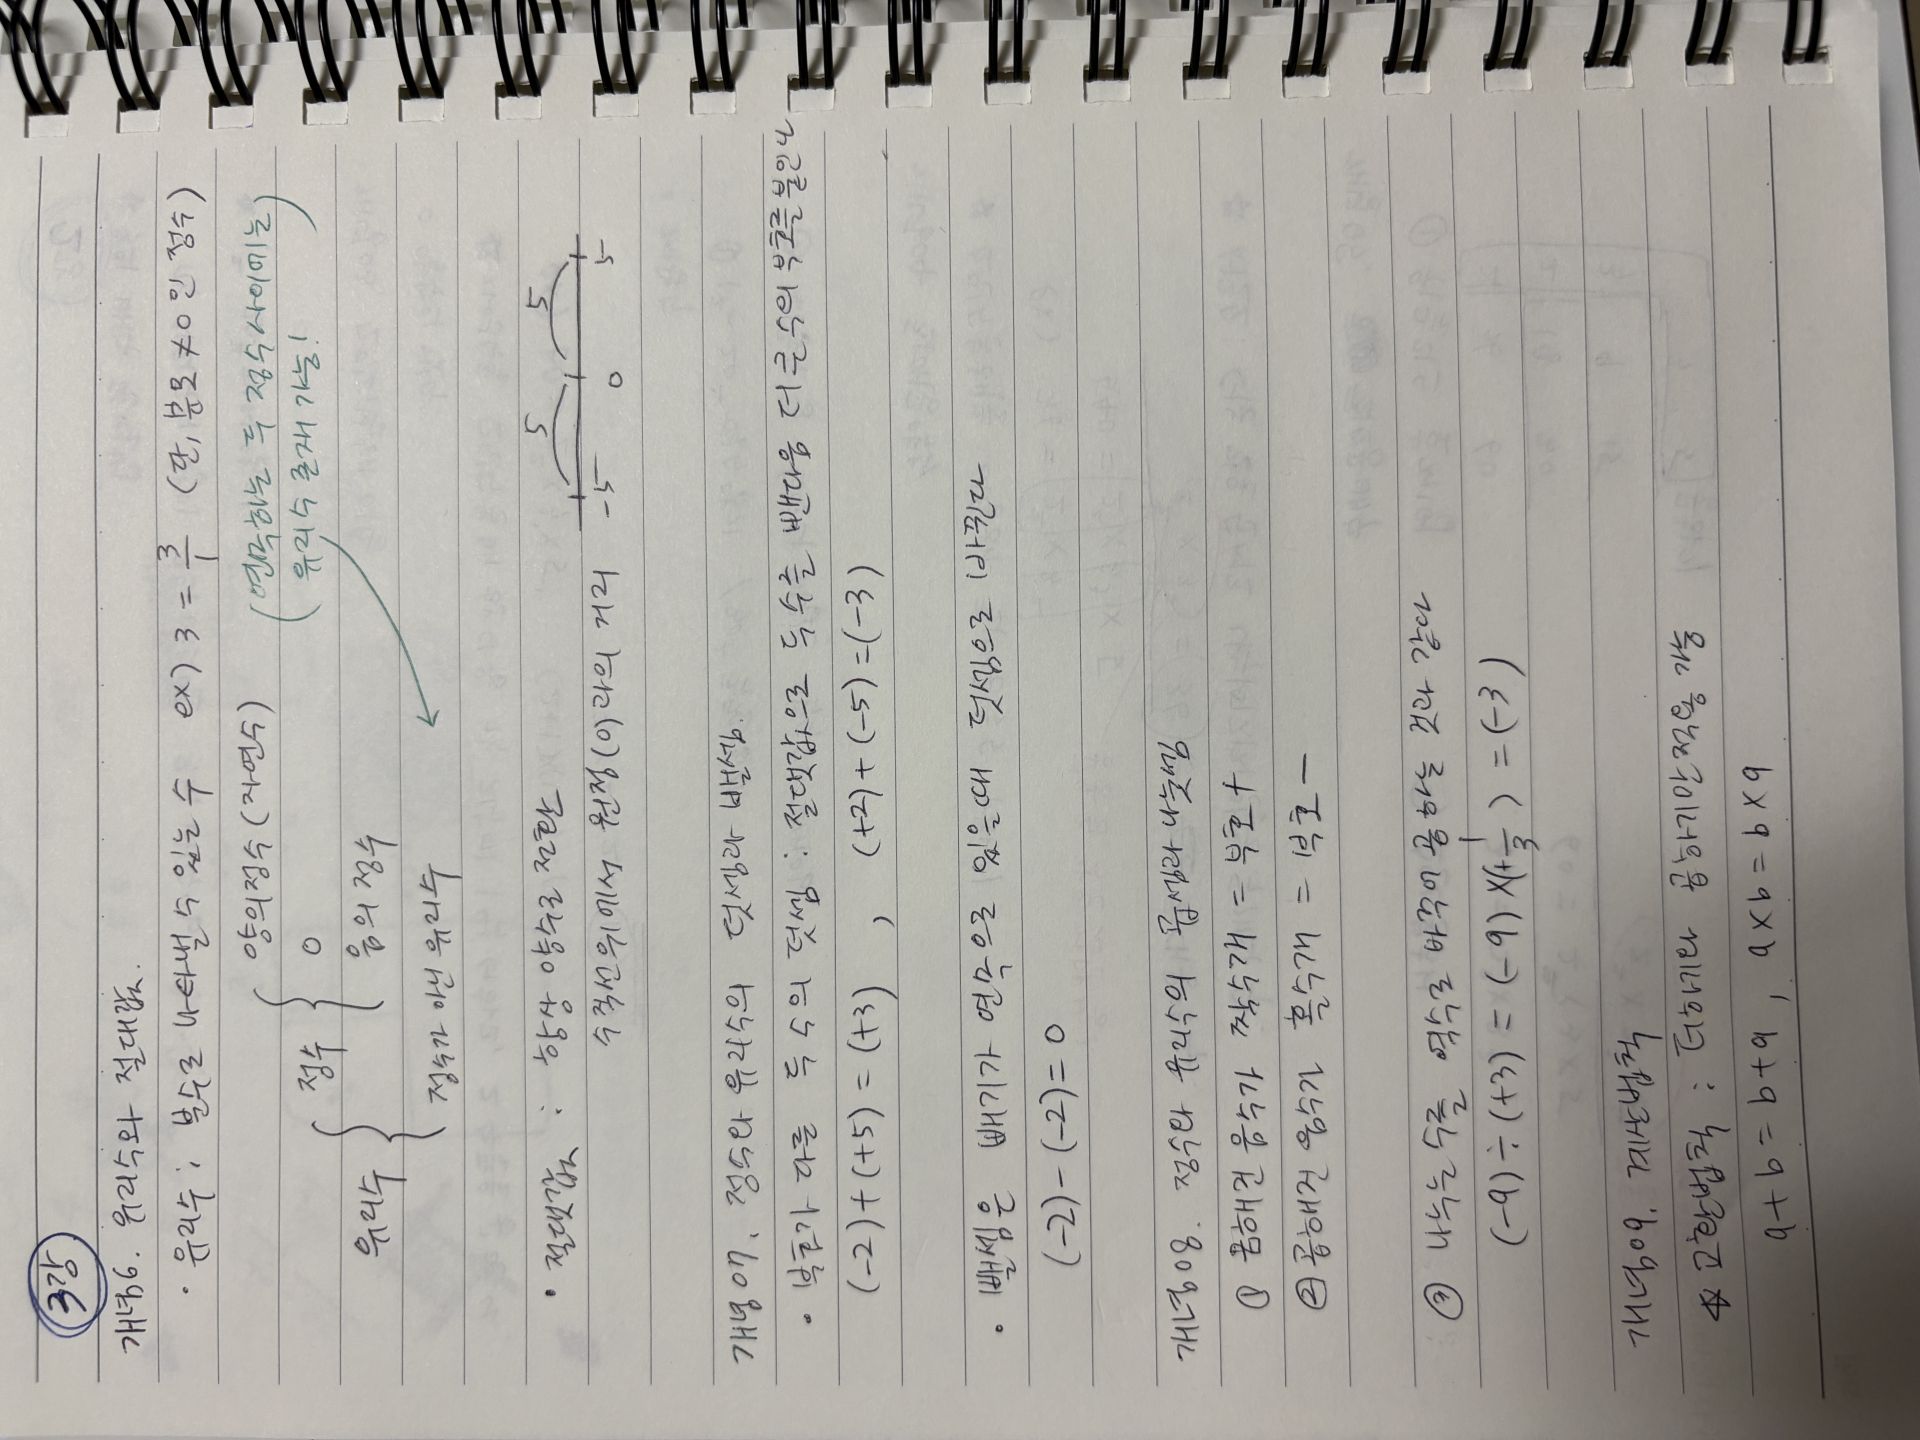 3강
개념6. 유리수와 절대값.
· 유리수 : 분수로 나타낼 수 있는 수 ex) 3 = 3/1 (단, 분모 ≠ 0인 정수)
양의정수 (자연수)
(연속하는 두 정수사이에는
유리수 존재 가능!)
정수 { 0
음의 정수
유리수 {
정수가 아닌 유리수
· 절댓값 : 항상 양수로 전환
수직선위에서 원점(0)과의 거리
5 5
-5 0 5
개념07. 정수와 유리수의 덧셈과 뺄셈.
· 부호가 다른 두 수의 덧셈 : 절댓값으로 두 수를 뺀다음 더 큰 수의 부호를 붙인다
(-2)+(+5) = (+3) , (+2)+(-5)=(-3)
· 뺄셈은 빼기가 연속으로 있을때 덧셈으로 바뀐다
(-2)-(-2)=0
개념08. 정수와 유리수의 곱셈과 나눗셈
① 곱해진 음수가 짝수개 = 부호 +
② 곱해진 음수가 홀수개 = 부호 −
③ 나누는 수를 역수로 바꾸면 곱하는 것과 같다
(-9)÷(+3) = (-9)×(+1/3) = (-3)
개념09. 계산법칙
☆ 교환법칙 : 더하기와 곱하기만적용 가능
a+b = b+a , a×b = b×a